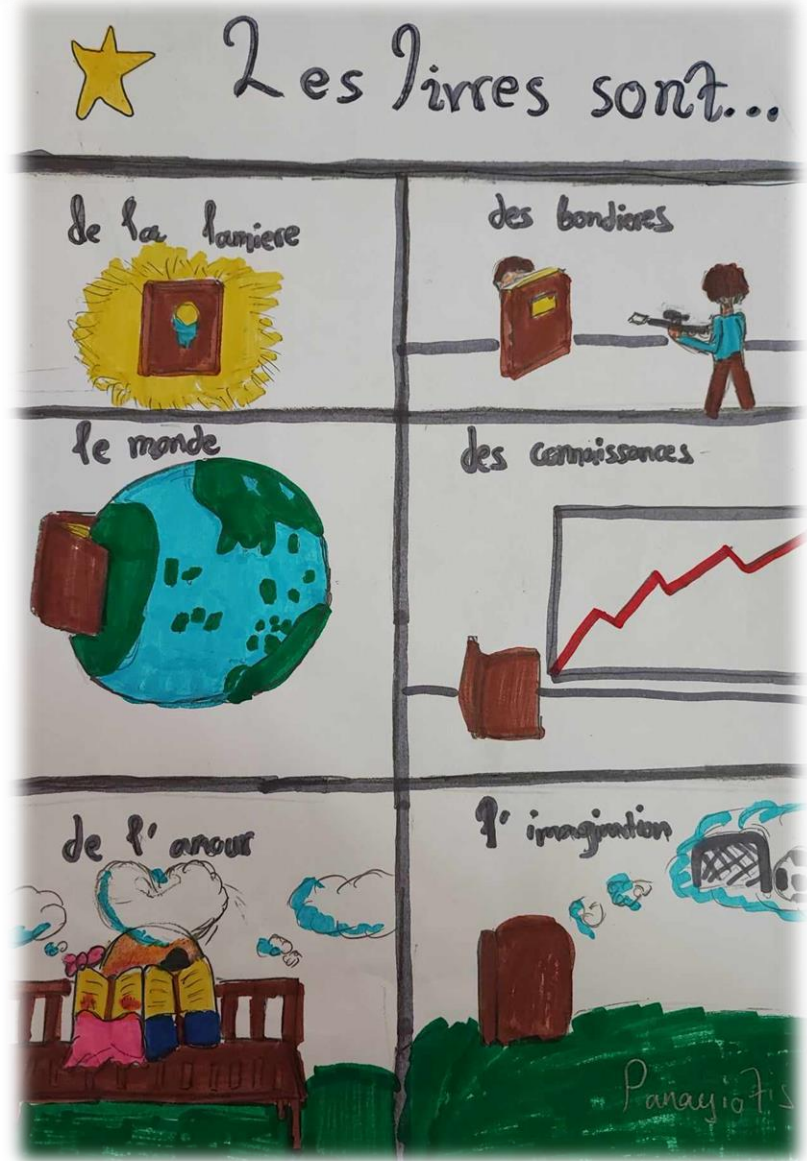 Les livres sont...
de la lamiere
des bondieres
le monde
des connaissances
de l'amour
l'imagination
Panayiotis